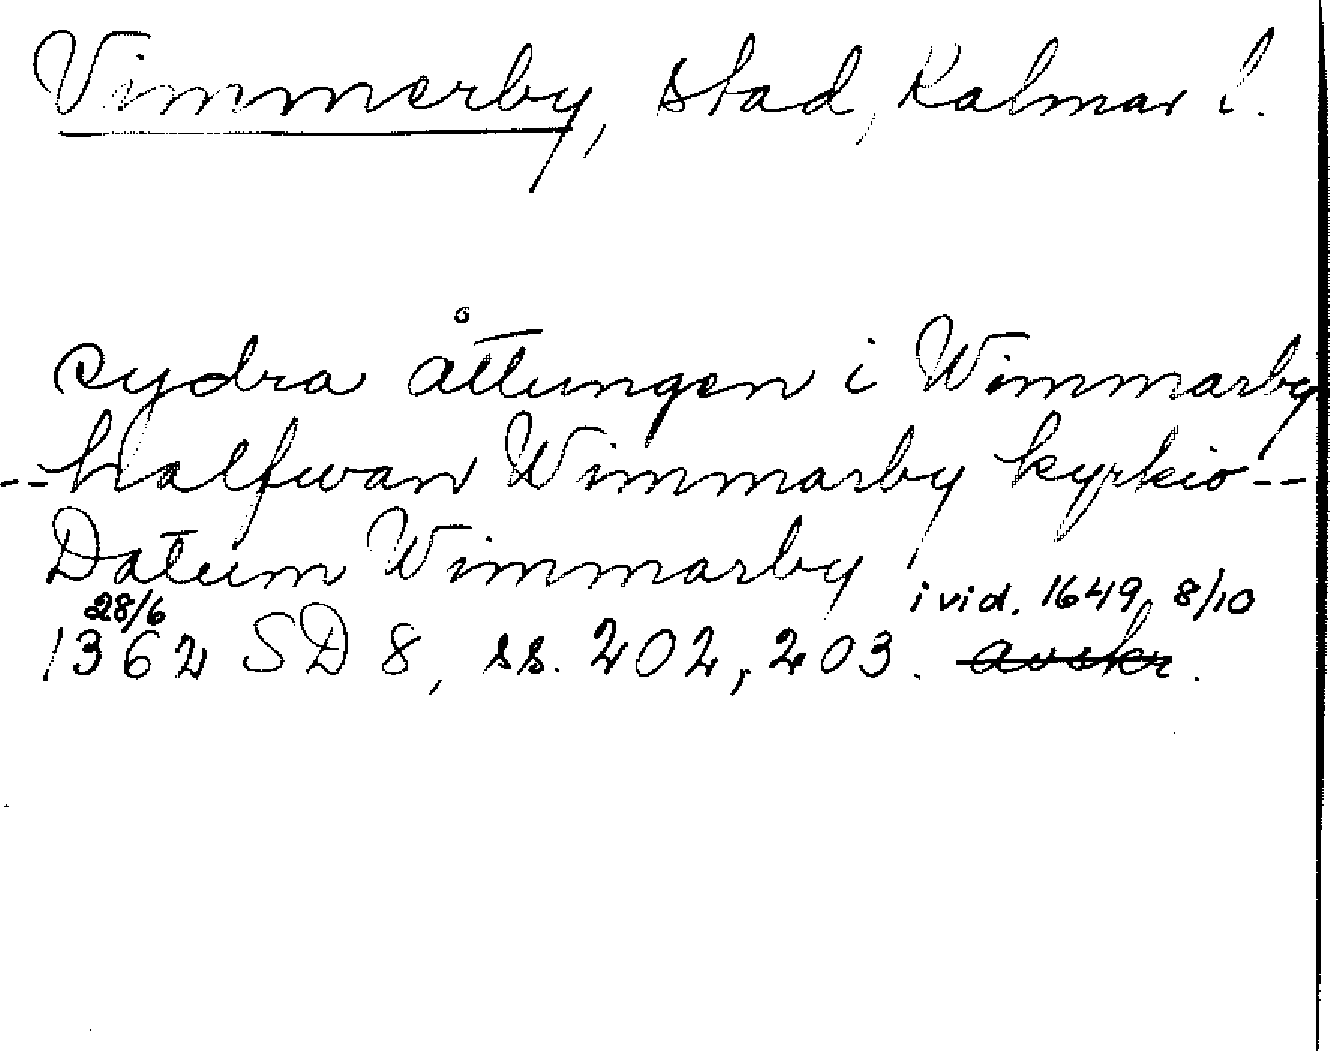 Vimmerby, stad, Kalmar l.
sydra åttungen i Wimmarby
--halfwan Wimmarby kyrkio--
Datum Wimmarby
i vid. 1649, 8/10
28/6
1362 SD 8, ss. 202, 203. avskr.